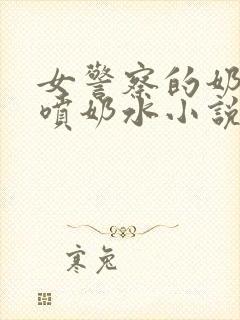 女警察的奶
噴奶水小說
寒兔